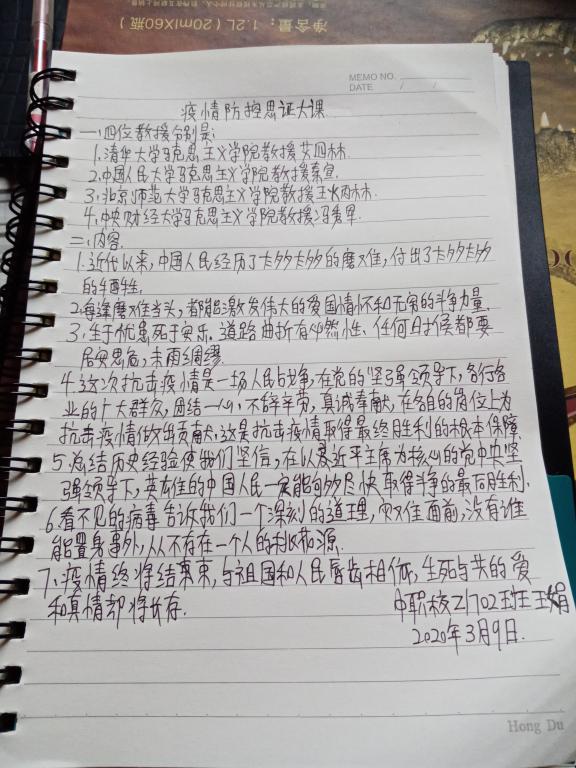 净含量：1.2L（20mlX60瓶）
MEMO NO.
DATE / /
疫情防控思证大课
一、四位教授分别是：
1.清华大学马克思主义学院教授艾四林.
2.中国人民大学马克思主义学院教授秦宣.
3.北京师范大学马克思主义学院教授王炳林.
4.中央财经大学马克思主义学院教授冯秀军.
二、内容.
1.近代以来,中国人民经历了太多太多的磨难,付出了太多太多
的牺牲.
2.每逢磨难当头,都能激发伟大的爱国情怀和无穷的斗争力量.
3.生于忧患死于安乐.道路曲折有必然性、任何时候都要
居安思危,未雨绸缪.
4.这次抗击疫情是一场人民战争,在党的坚强领导下,各行各
业的广大群众,团结一心,不辞辛劳,真诚奉献,在各自的岗位上为
抗击疫情做出贡献,这是抗击疫情取得最终胜利的根本保障.
5.总结历史经验使我们坚信,在以习近平主席为核心的党中央坚
强领导下,英雄的中国人民一定能够尽快取得斗争的最后胜利.
6.看不见的病毒告诉我们一个深刻的道理,灾难面前,没有谁
能置身事外,从不存在一个人的桃花源.
7.疫情终将结束,与祖国和人民唇齿相依,生死与共的爱
和真情却将长存.
中职校Z1702班王娟
2020年3月9日.
Hong Du